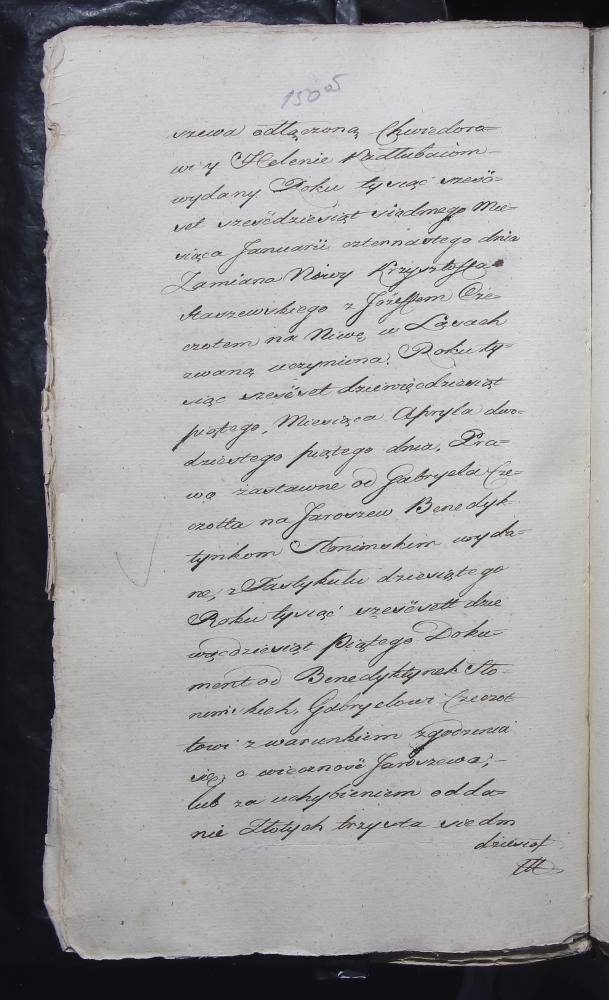 150 05
szewa odłączoną Chwiedora=
wi y Helenie Kadłubaiom
wydany. Roku tysiąc sześć=
set sześćdziesiąt siódmego Mie=
siąca Januarii czternastego dnia
Zamiana Niwy Krzysztoffa
Staszewskiego z Józeffem Cze=
czotem na Niwę w Łąsach
zwaną uczyniona. Roku ty=
siąc sześćset dziewięćdziesiąt
piątego, Miesiąca Apryla dwu=
dziestego piątego dnia. Pra=
wo zastawne od Gabryela Cze=
czotta na Jaroszew Benedyk
tynkom Słonimskim wyda=
ne, z Fastykułu dziesiątego
Roku tysiąć sześćsett dzie
więcdziesiąt Piątego Doku=
ment od Benedyktynek Sło=
nimskich, Gabryelowi Czeczot
towi z warunkiem zgodzenia
się, o wieczność Jaroszewa,
lub za uchybieniem odda=
nie Złotych trzysta siedm
dziesiąt